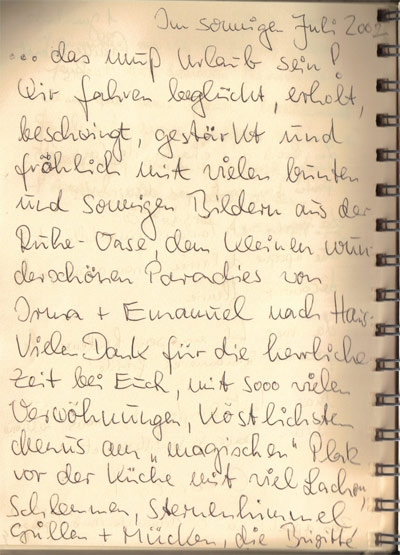 Im sonnigen Juli 2002
... das muß Urlaub sein!
Wir fahren beglückt, erholt,
beschwingt, gestärkt und
fröhlich mit vielen bunten
und sonnigen Bildern aus der
Ruhe-Oase, dem kleinen wun-
derschönen Paradies von
Irma + Emanuel nach Haus.
Vielen Dank für die herrliche
Zeit bei Euch, mit sooo vielen
Verwöhnungen, köstlichsten
Menüs am „magischen" Platz
vor der Küche mit viel Lachen,
Schlemmen, Sternenhimmel
Grillen + Mücken, die Brigitte